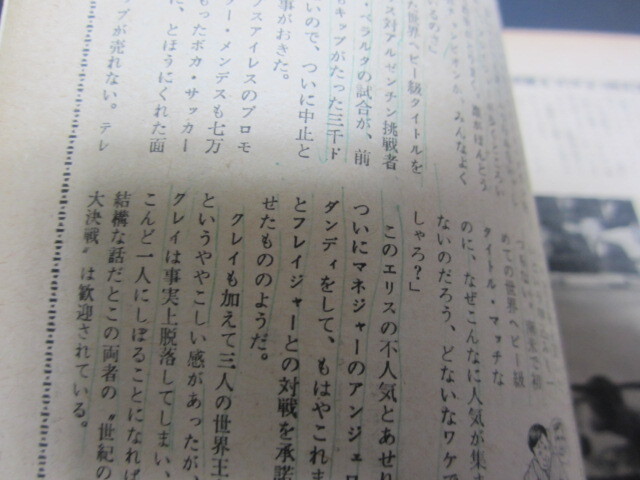 た世界ヘビー級タイトルを
ス対アルゼンチン挑戦者
・ペラルタの試合が、前
もキップがたった三千ド
いので、ついに中止と
事がおきた。
ブスアイレスのプロモ
ラー・メンデスも七万
もったボカ・サッカー
に、とほうにくれた面
ップが売れない。テレ
めての世界ヘビー級
タイトル・マッチな
のに、なぜこんなに人気が集ま
ないのだろう、どないなワケで
しゃろ？」
このエリスの不人気とあせり
ついにマネジャーのアンジェロ
ダンディをして、もはやこれま
とフレイジャーとの対戦を承諾
せたもののようだ。
クレイも加えて三人の世界王
というややこしい感があったが、
クレイは事実上脱落してしまい、
こんど一人にしぼることになれば
結構な話だとこの両者の〝世紀の
大決戦〟は歓迎されている。